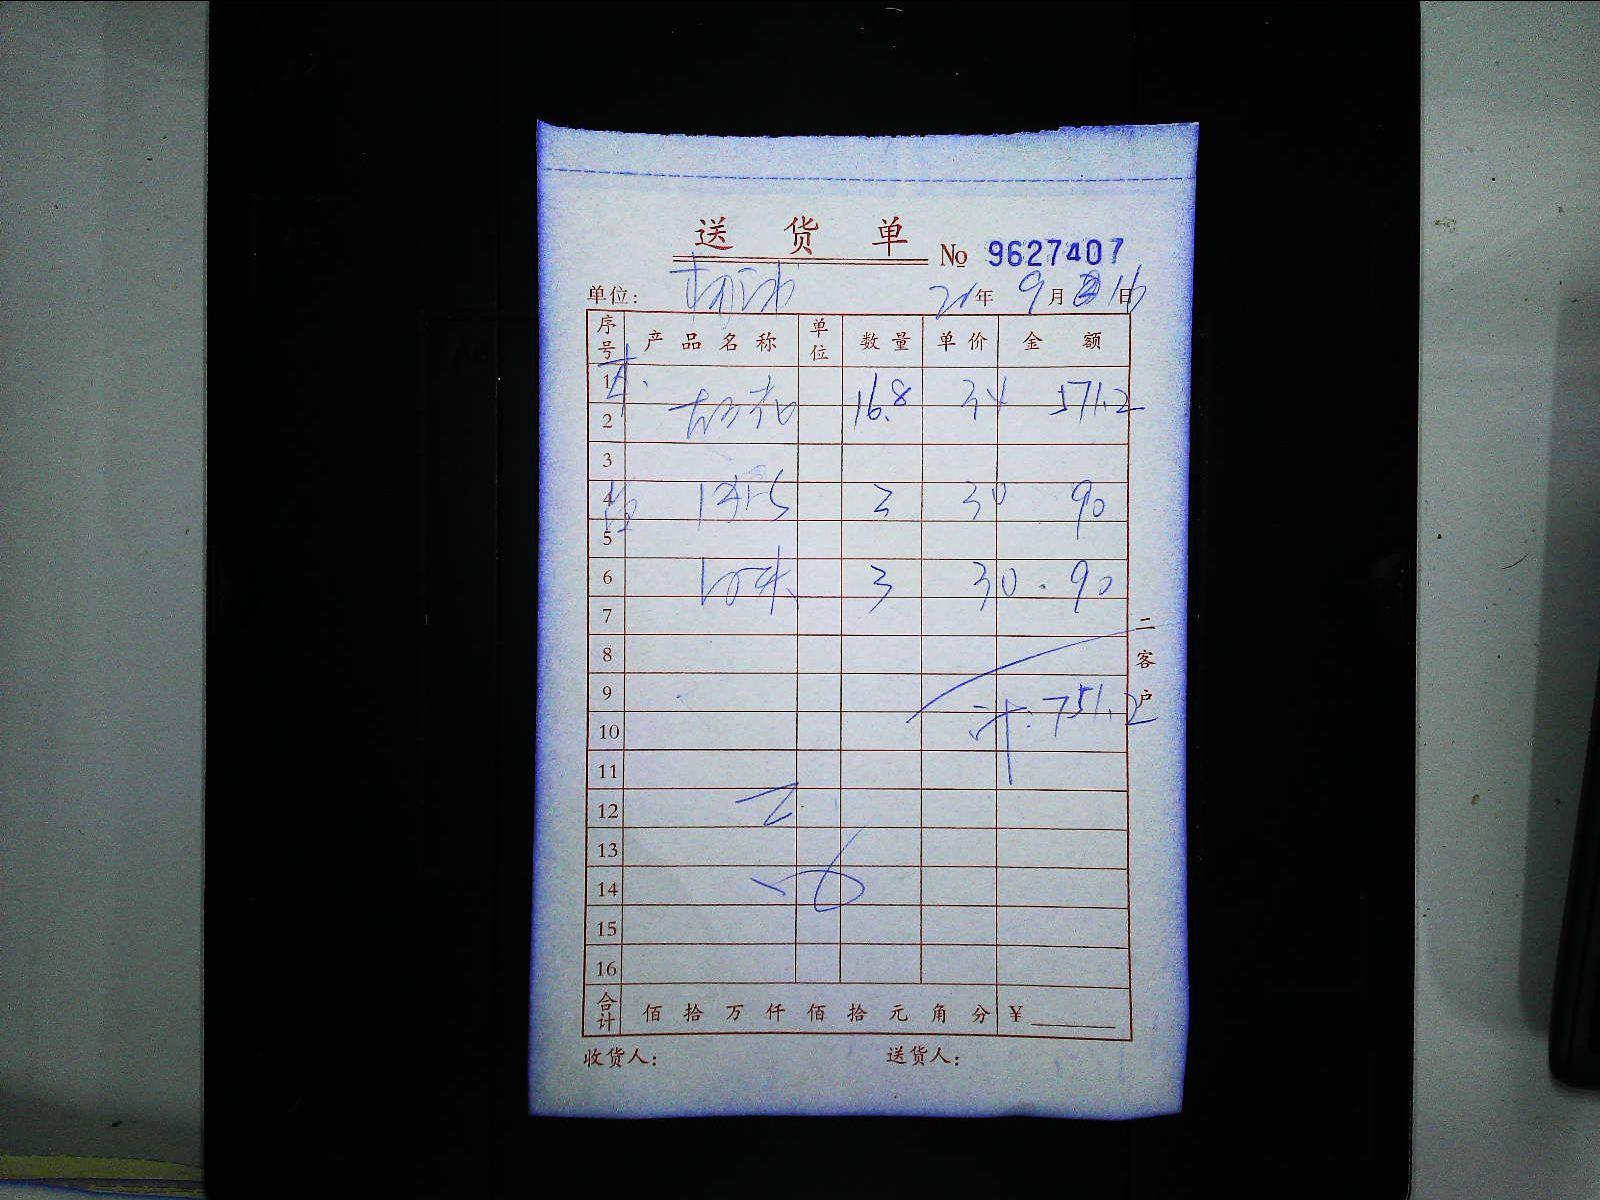 送货单 № 9627407
单位: 21年 9月 16日
序号 产品名称 单位 数量 单价 金额
1
2 16.8 34 571.2
3
4 3 30 90
5
6 3 30. 90
7
8
9
10 计: 751.2
11
12
13
14
15
16
合计 佰拾万仟佰拾元角分 ¥
收货人: 送货人:
二客户